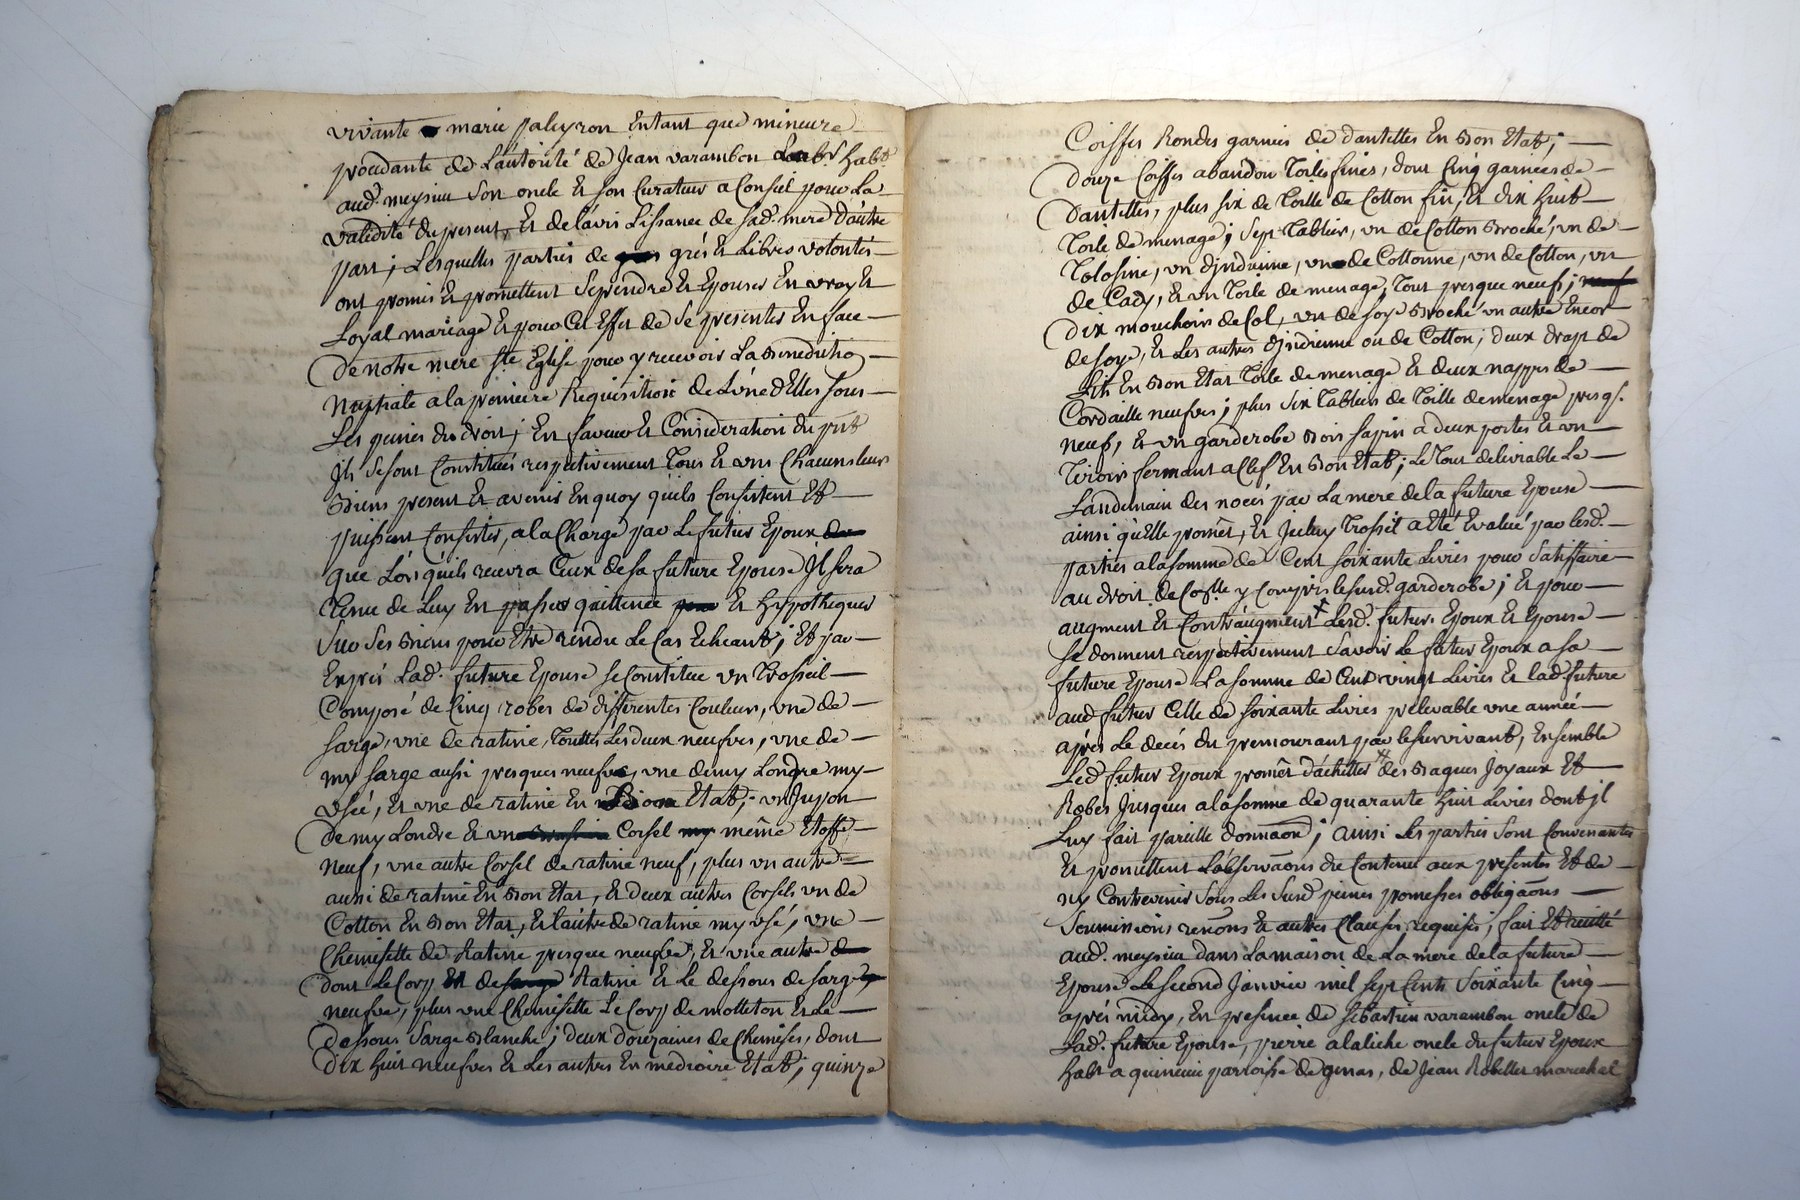 vivante marie paleyron Entant que mineure
procedante de L'autorité de Jean varambon Labr habt
aud. meysieu son oncle Et son Curateur a Conseil pour La
validité du present, Et de l'avis Lissance de sad. mere D'autre
part; Lesquelles parties de grés Et Libres volontés
ont promis Et promettent Seprendre Et Epouser En vray Et
Loyal mariage Et pour Cet Effet de se presenter En face
De notre mere Ste Eglise pour y recevoir La Benedictio
Nuptiale a la premiere Requisition de L'une d'Elles sous
Les peines du droit; En faveur Et Consideration du pnt
Ils se sont Constitués respectivement Tous Et uns Chacuns leurs
Biens present Et avenir En quoy qu'ils Consistent Et
puissent Consister, a la Charge par Le futur Epoux
que Lors qu'il recevra Ceux de sa future Epouse Il sera
Tenu de Luy En passer quittance Et Hypothequer
Sur ses Biens pour Etre rendu Le Cas Echeant; Et par
Exprès Lad. future Epouse se Constitue un Trosseil
Composé de Cinq robes de differentes Couleurs, une de
sarge, une de ratine, Toutes Les deux neufves, une de
my sarge aussi presques neufve, une demy Londre my
usée, Et une de ratine En Bon Etat; un Jupon
De my Londre Et un Corsel même Etoffe
neuf, une autre Corsel de ratine neuf, plus un autre
aussi de ratine En Bon Etat, Et deux autres Corsels un de
Cotton En Bon Etat, Et l'autre de ratine my usé, une
Chemisette de Ratine presque neufve, Et une autre
dont Le Corp Et de Ratine Et Le dessous de sarge
neufve, plus une Chemisette Le Corp de molleton Et Le
dessous Sarge Blanche; deux douzaines de Chemises, dont
dix huit neufves Et Les autres En mediocre Etat; quinze
Coiffes Rondes garnies de dantelles En Bon Etat;
Douze Coiffes abandon Toiles fines, dont Cinq garnies de
Dantelles, plus six de Toille de Cotton fin, Et dix huit
Toile de menage; Sept Tablier, un de Cotton Broché, un de
Tolosine, un d'jndienne, un de Cottonne, un de Cotton, un
de Cady, Et un Toile de menage, Tous presque neufs;
Dix mouchoir de Col, un de soye Broché un autre Encor
de soye, Et Les autres d'jndienne ou de Cotton; deux drap de
Lit En Bon Etat Toile de menage Et deux nappes de
Cordaille neufves; plus Six Tabliers de Toille de menage presq.
neufs, Et un garderobe Bois sapin a deux portes Et un
Tiroir fermant a Clef En Bon Etat; Le Tout delivrable Le
Landemain des noces par La mere de la future Epouse
ainsi qu'Elle promet, Et Jceluy Trossel a Eté Evalué par lesd.
parties a la somme de Cent soixante Livres pour Satisfaire
au droit de Cotte y Compris le susd. garderobe; Et pour
augment Et Contraugment Lesd. futurs Epoux Et Epouse
se donnent respectivement Savoir Le futur Epoux a sa
future Epouse La somme de Cent vingt Livres Et lad. future
aud. futur Celle de soixante Livres prelevable une année
après Le deces du premourant par le survivant, Ensemble
Led. futur Epoux promet d'achetter des Bagues Joyaux Et
Robes Jusques a la somme de quarante huit Livres dont jl
Luy fait pareille donnaon; ainsi Les parties sont Convenantes
Et promettent L'observaons du Contenu aux presentes Et de
ny Contrevenir Sous Les Susd. peines promesses obligaons
Soumissions renons Et autres Clauses requises; fait Et recitté
aud. meysieu dans La maison de La mere de la future
Epouse Le second Janvier mil sept Cents Soixante Cinq
après midy, En presence de Sebastien varambon oncle de
Lad. future Epouse, pierre alaliche oncle du futur Epoux
habt a quincieu parroisse de genas, de Jean Robellet marechal